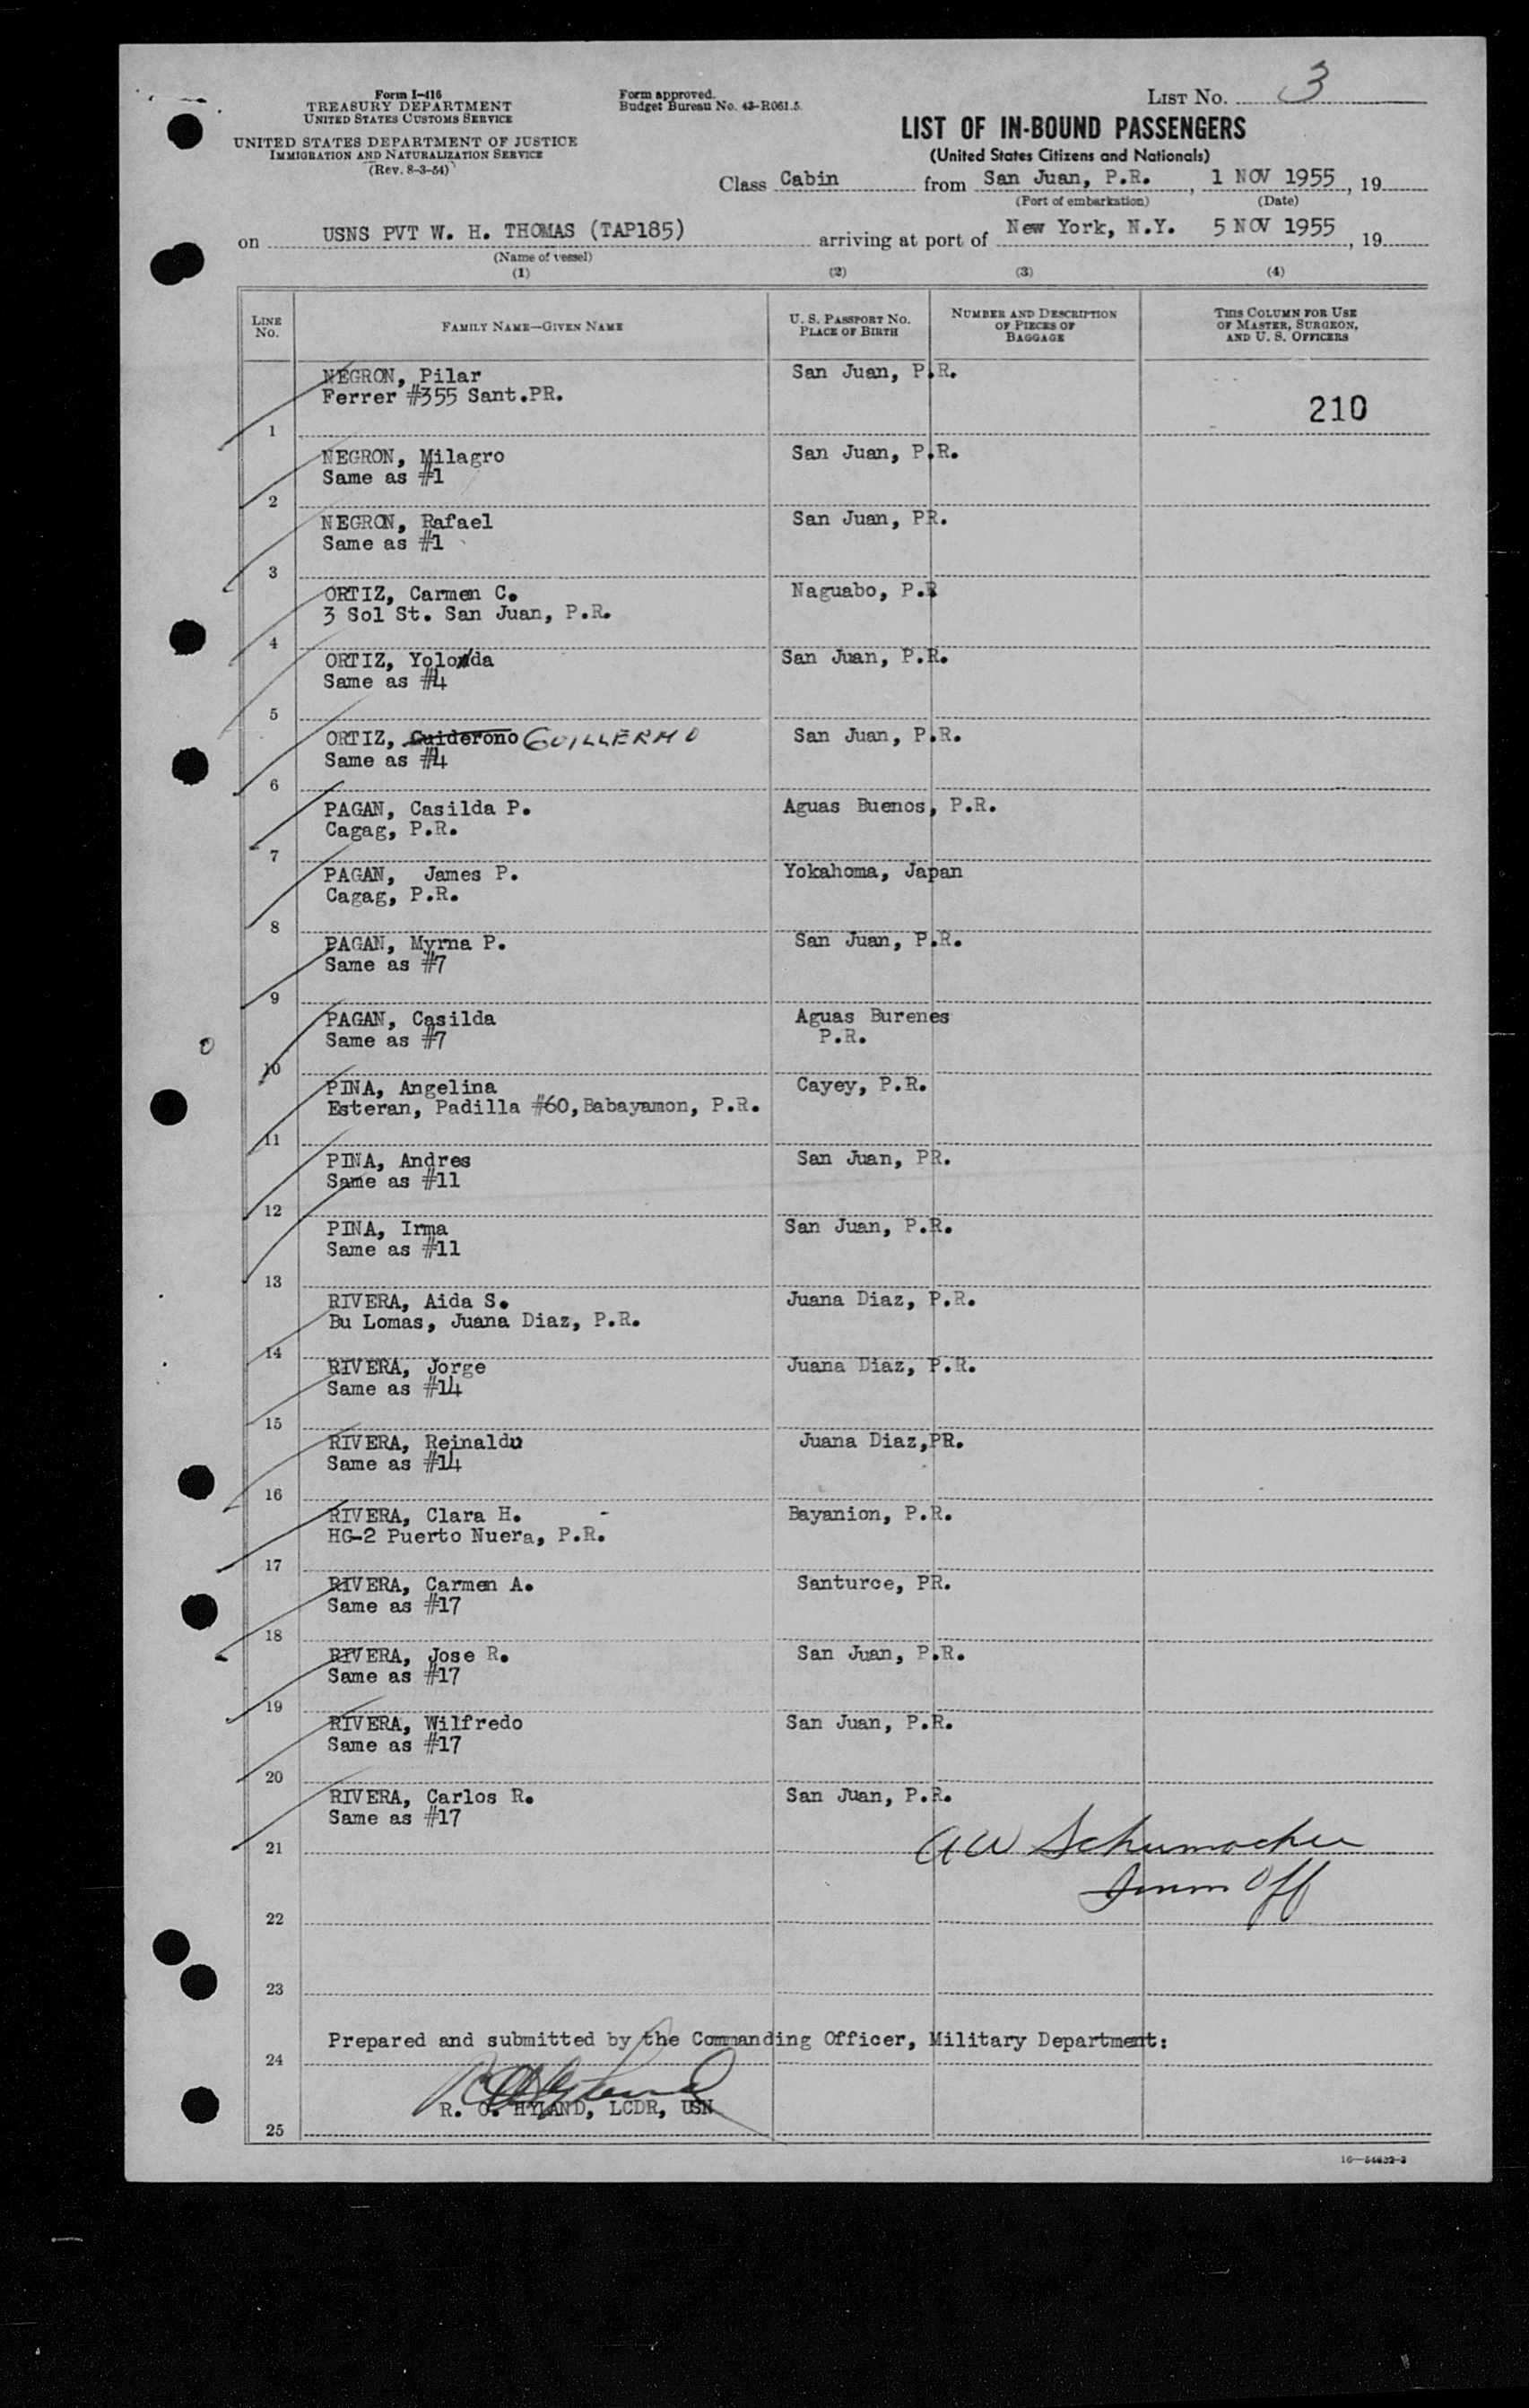 Form I-416
TREASURY DEPARTMENT
UNITED STATES CUSTOMS SERVICE
UNITED STATES DEPARTMENT OF JUSTICE
IMMIGRATION AND NATURALIZATION SERVICE
(Rev. 8-3-54)
Form approved.
Budget Bureau No. 43-R061.5.
LIST NO. 3
LIST OF IN-BOUND PASSENGERS
(United States Citizens and Nationals)
Class Cabin from San Juan, P.R., 1 NOV 1955, 19
(Port of embarkation) (Date)
on USNS PVT W. H. THOMAS (TAP185) arriving at port of New York, N.Y. 5 NOV 1955, 19
(Name of vessel)
(1) (2) (3) (4)
LINE NO. FAMILY NAME—GIVEN NAME U. S. PASSPORT NO. PLACE OF BIRTH NUMBER AND DESCRIPTION OF PIECES OF BAGGAGE THIS COLUMN FOR USE OF MASTER, SURGEON, AND U. S. OFFICERS
NEGRON, Pilar San Juan, P.R.
Ferrer #355 Sant.PR. 210
1
NEGRON, Milagro San Juan, P.R.
Same as #1
2
NEGRON, Rafael San Juan, PR.
Same as #1
3
ORTIZ, Carmen C. Naguabo, P.R
3 Sol St. San Juan, P.R.
4
ORTIZ, Yolonda San Juan, P.R.
Same as #4
5
ORTIZ, Guiderono GUILLERMO San Juan, P.R.
Same as #4
6
PAGAN, Casilda P. Aguas Buenos, P.R.
Cagag, P.R.
7
PAGAN, James P. Yokahoma, Japan
Cagag, P.R.
8
PAGAN, Myrna P. San Juan, P.R.
Same as #7
9
PAGAN, Casilda Aguas Burenes
Same as #7 P.R.
10
PINA, Angelina Cayey, P.R.
Esteran, Padilla #60,Babayamon, P.R.
11
PINA, Andres San Juan, PR.
Same as #11
12
PINA, Irma San Juan, P.R.
Same as #11
13
RIVERA, Aida S. Juana Diaz, P.R.
Bu Lomas, Juana Diaz, P.R.
14
RIVERA, Jorge Juana Diaz, P.R.
Same as #14
15
RIVERA, Reinaldu Juana Diaz,PR.
Same as #14
16
RIVERA, Clara H. Bayanion, P.R.
HG-2 Puerto Nuera, P.R.
17
RIVERA, Carmen A. Santurce, PR.
Same as #17
18
RIVERA, Jose R. San Juan, P.R.
Same as #17
19
RIVERA, Wilfredo San Juan, P.R.
Same as #17
20
RIVERA, Carlos R. San Juan, P.R.
Same as #17
21 A W Schumacher
Imm Off
22
23
Prepared and submitted by the Commanding Officer, Military Department:
24
R. O. HYLAND, LCDR, USN
25